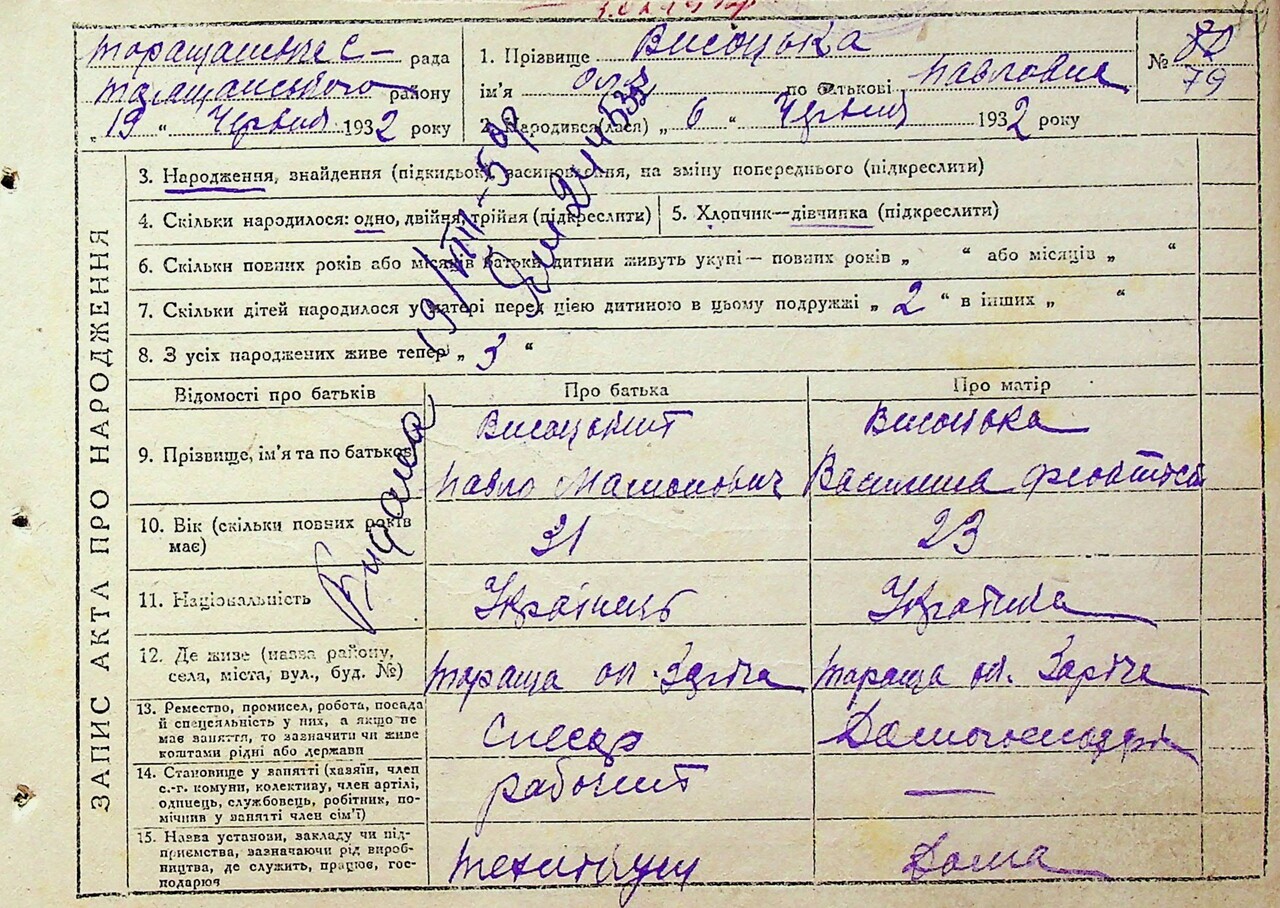 Таращанське С – рада
Таращанського району
„ 19 “ Червня 1932 року
1. Прізвище Висоцька
ім'я по батькові Павловна
2. Народився(лася) „ 6 “ Червня 1932 року
№ 79
ЗАПИС АКТА ПРО НАРОДЖЕННЯ
3. Народження, знайдення (підкидьок), засиновлення, на зміну попереднього (підкреслити)
4. Скільки народилося: одно, двійня, трійня (підкреслити)
5. Хлопчик—дівчинка (підкреслити)
6. Скільки повних років або місяців батьки дитини живуть укупі — повних років „ “ або місяців „ “
7. Скільки дітей народилося у матері перед цією дитиною в цьому подружжі „ 2 “ в інших „ “
8. З усіх народжених живе тепер „ 3 “
Відомості про батьків
Про батька
Про матір
9. Прізвище, ім'я та по батькові
Висоцький
Павло
Висоцька
Василина
10. Вік (скільки повних років
має)
31
23
11. Національність
Українець
Українка
12. Де живе (назва району,
села, міста, вул., буд. №)
Тараща ол. Заріча
Тараща ол. Заріча
13. Ремество, промисел, робота, посада
й спеціяльність у них, а якщо не
має заняття, то зазначити чи живе
коштами рідні або держави
Слесар
14. Становище у занятті (хазяїн, член
с.-г. комуни, колективу, член артілі,
одинець, службовець, робітник, по-
мічник у занятті член сім'ї)
рабочий
—
15. Назва установи, закладу чи під-
приємства, зазначаючи рід вироб-
ництва, де служить, працює, гос-
подарює
Дома